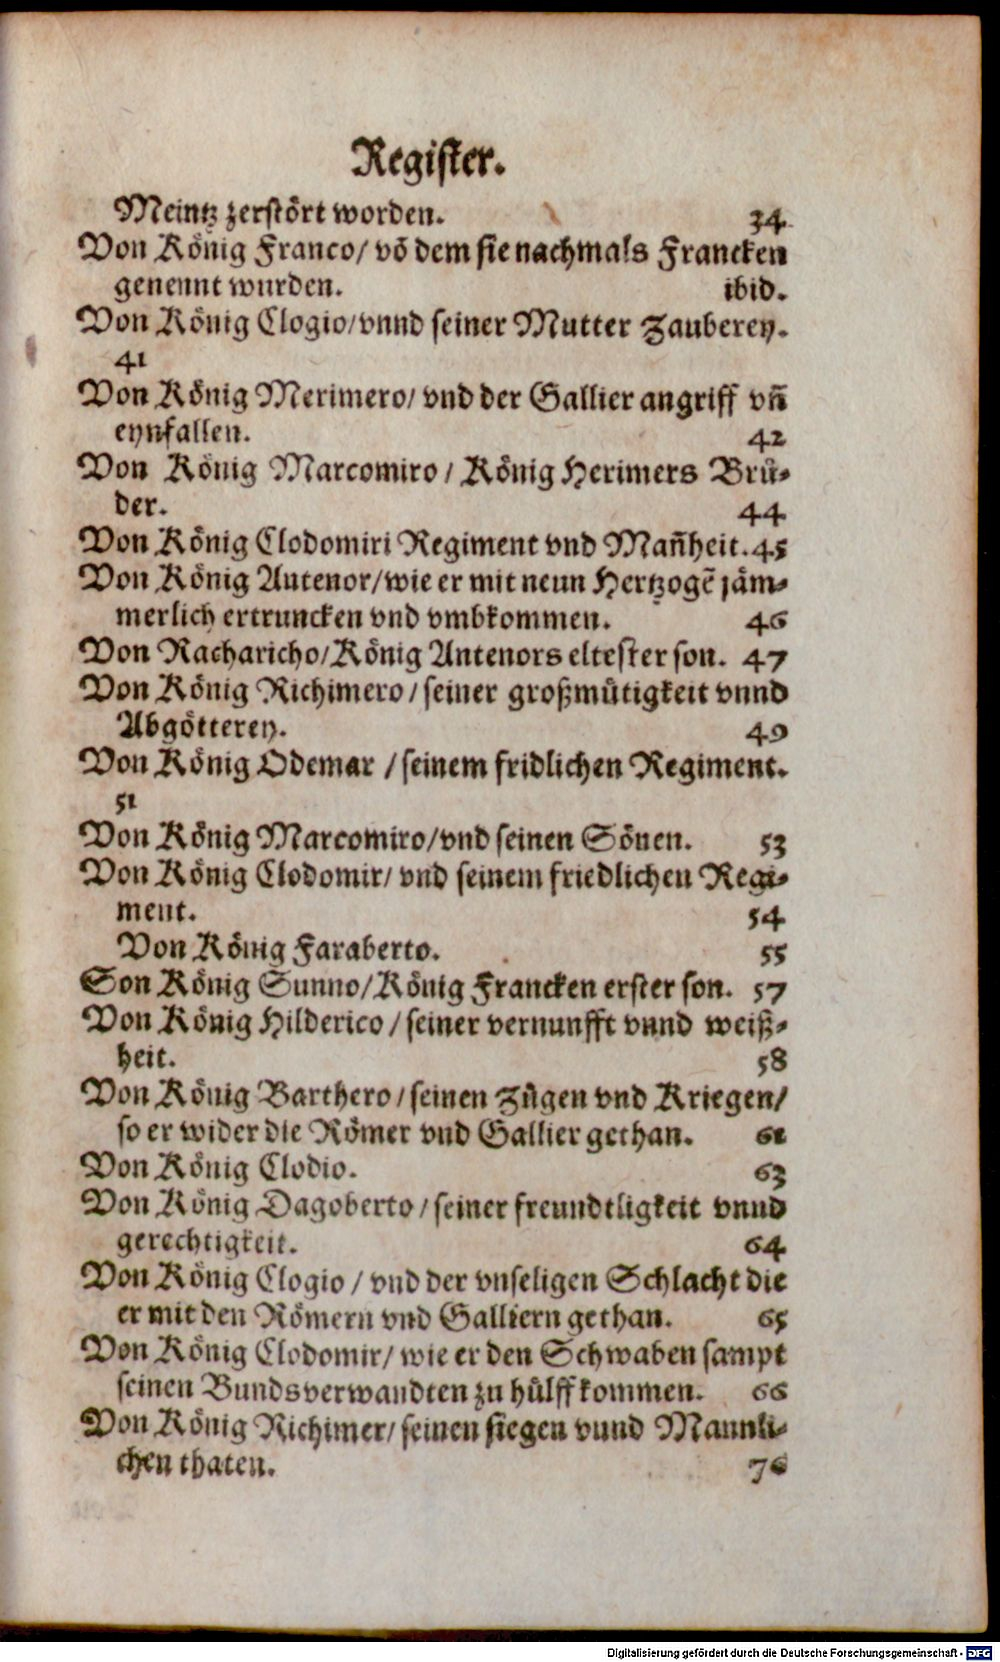 Register.
Meintz zerstört worden. 34
Von König Franco/ võ dem sie nachmals Francken
genennt wurden. ibid.
Von König Clogio/ vnnd seiner Mutter Zauberey.
41
Von König Merimero/ vnd der Gallier angriff vñ
eynfallen. 42
Von König Marcomiro / König Herimers Brů-
der. 44
Von König Clodomiri Regiment vnd Mañheit. 45
Von König Antenor/ wie er mit neun Hertzogẽ jäm-
merlich ertruncken vnd vmbkommen. 46
Von Racharicho/ König Antenors eltester son. 47
Von König Richimero / seiner großmütigkeit vnnd
Abgötterey. 49
Von König Odemar / seinem fridlichen Regiment.
51
Von König Marcomiro/ vnd seinen Sönen. 53
Von König Clodomir/ vnd seinem friedlichen Regi-
ment. 54
Von König Faraberto. 55
Son König Sunno/ König Francken erster son. 57
Von König Hilderico / seiner vernunfft vnnd weiß-
heit. 58
Von König Barthero / seinen Zügen vnd Kriegen/
so er wider die Römer vnd Gallier gethan. 61
Von König Clodio. 63
Von König Dagoberto / seiner freundtligkeit vnnd
gerechtigkeit. 64
Von König Clogio / vnd der vnseligen Schlacht die
er mit den Römern vnd Galliern gethan. 65
Von König Clodomir/ wie er den Schwaben sampt
seinen Bundsverwandten zu hülff kommen. 66
Von König Richimer/ seinen siegen vnnd Mannli-
chen thaten. 76
Digitalisierung gefördert durch die Deutsche Forschungsgemeinschaft - DFG